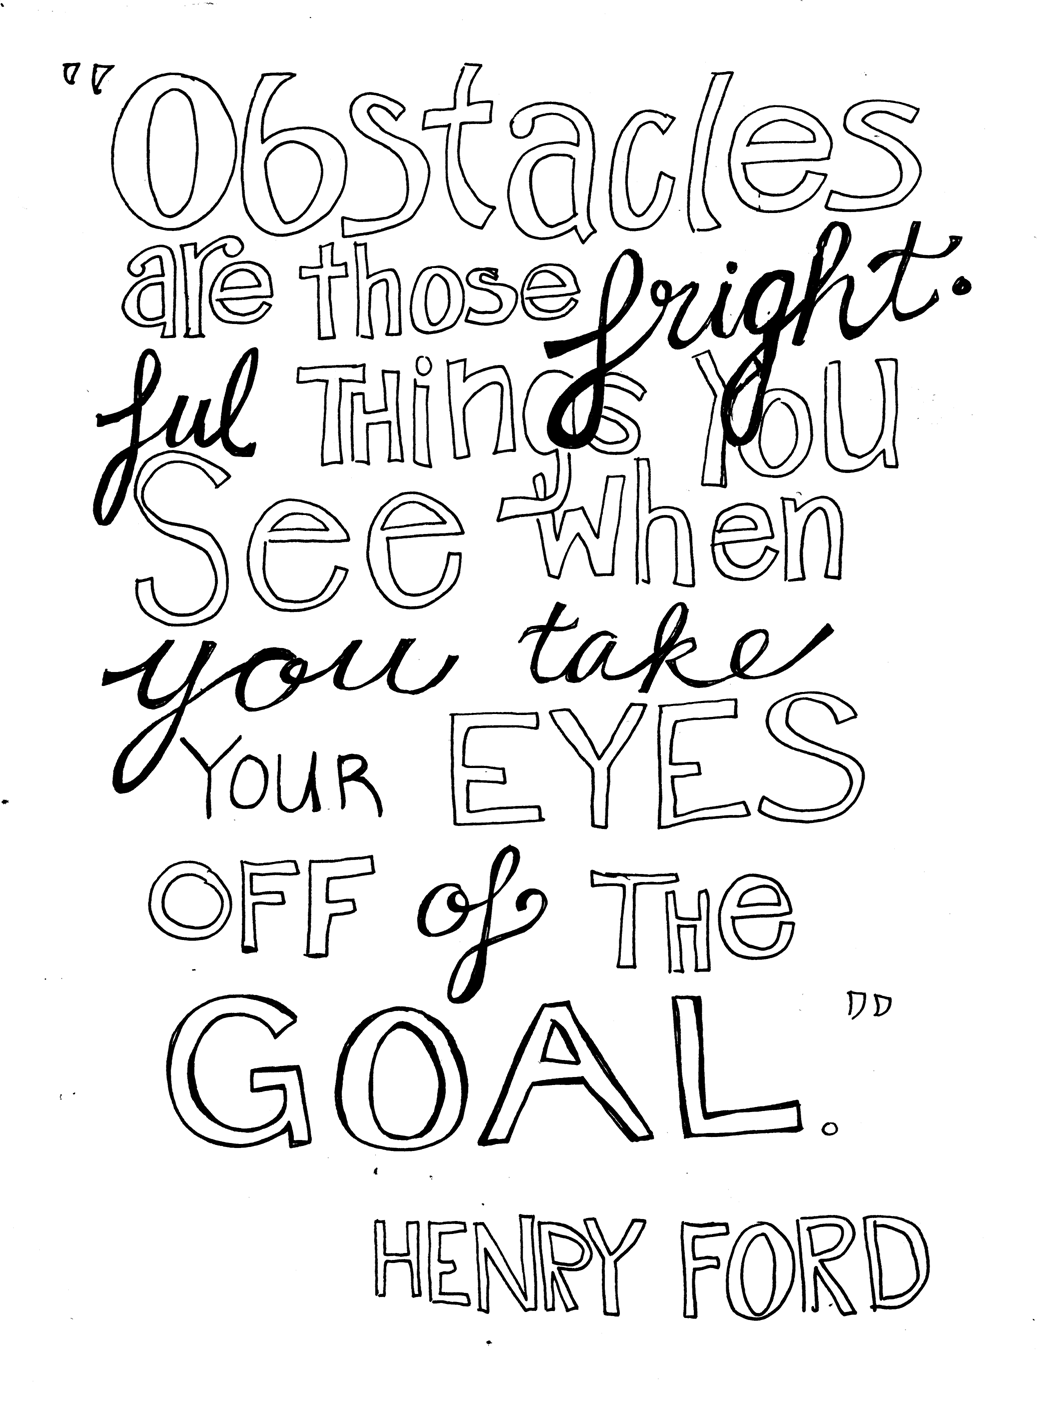 "Obstacles
are those fright.
ful THings You
See when
you take
YOUR EYES
OFF of THe
GOAL."
HENRY FORD